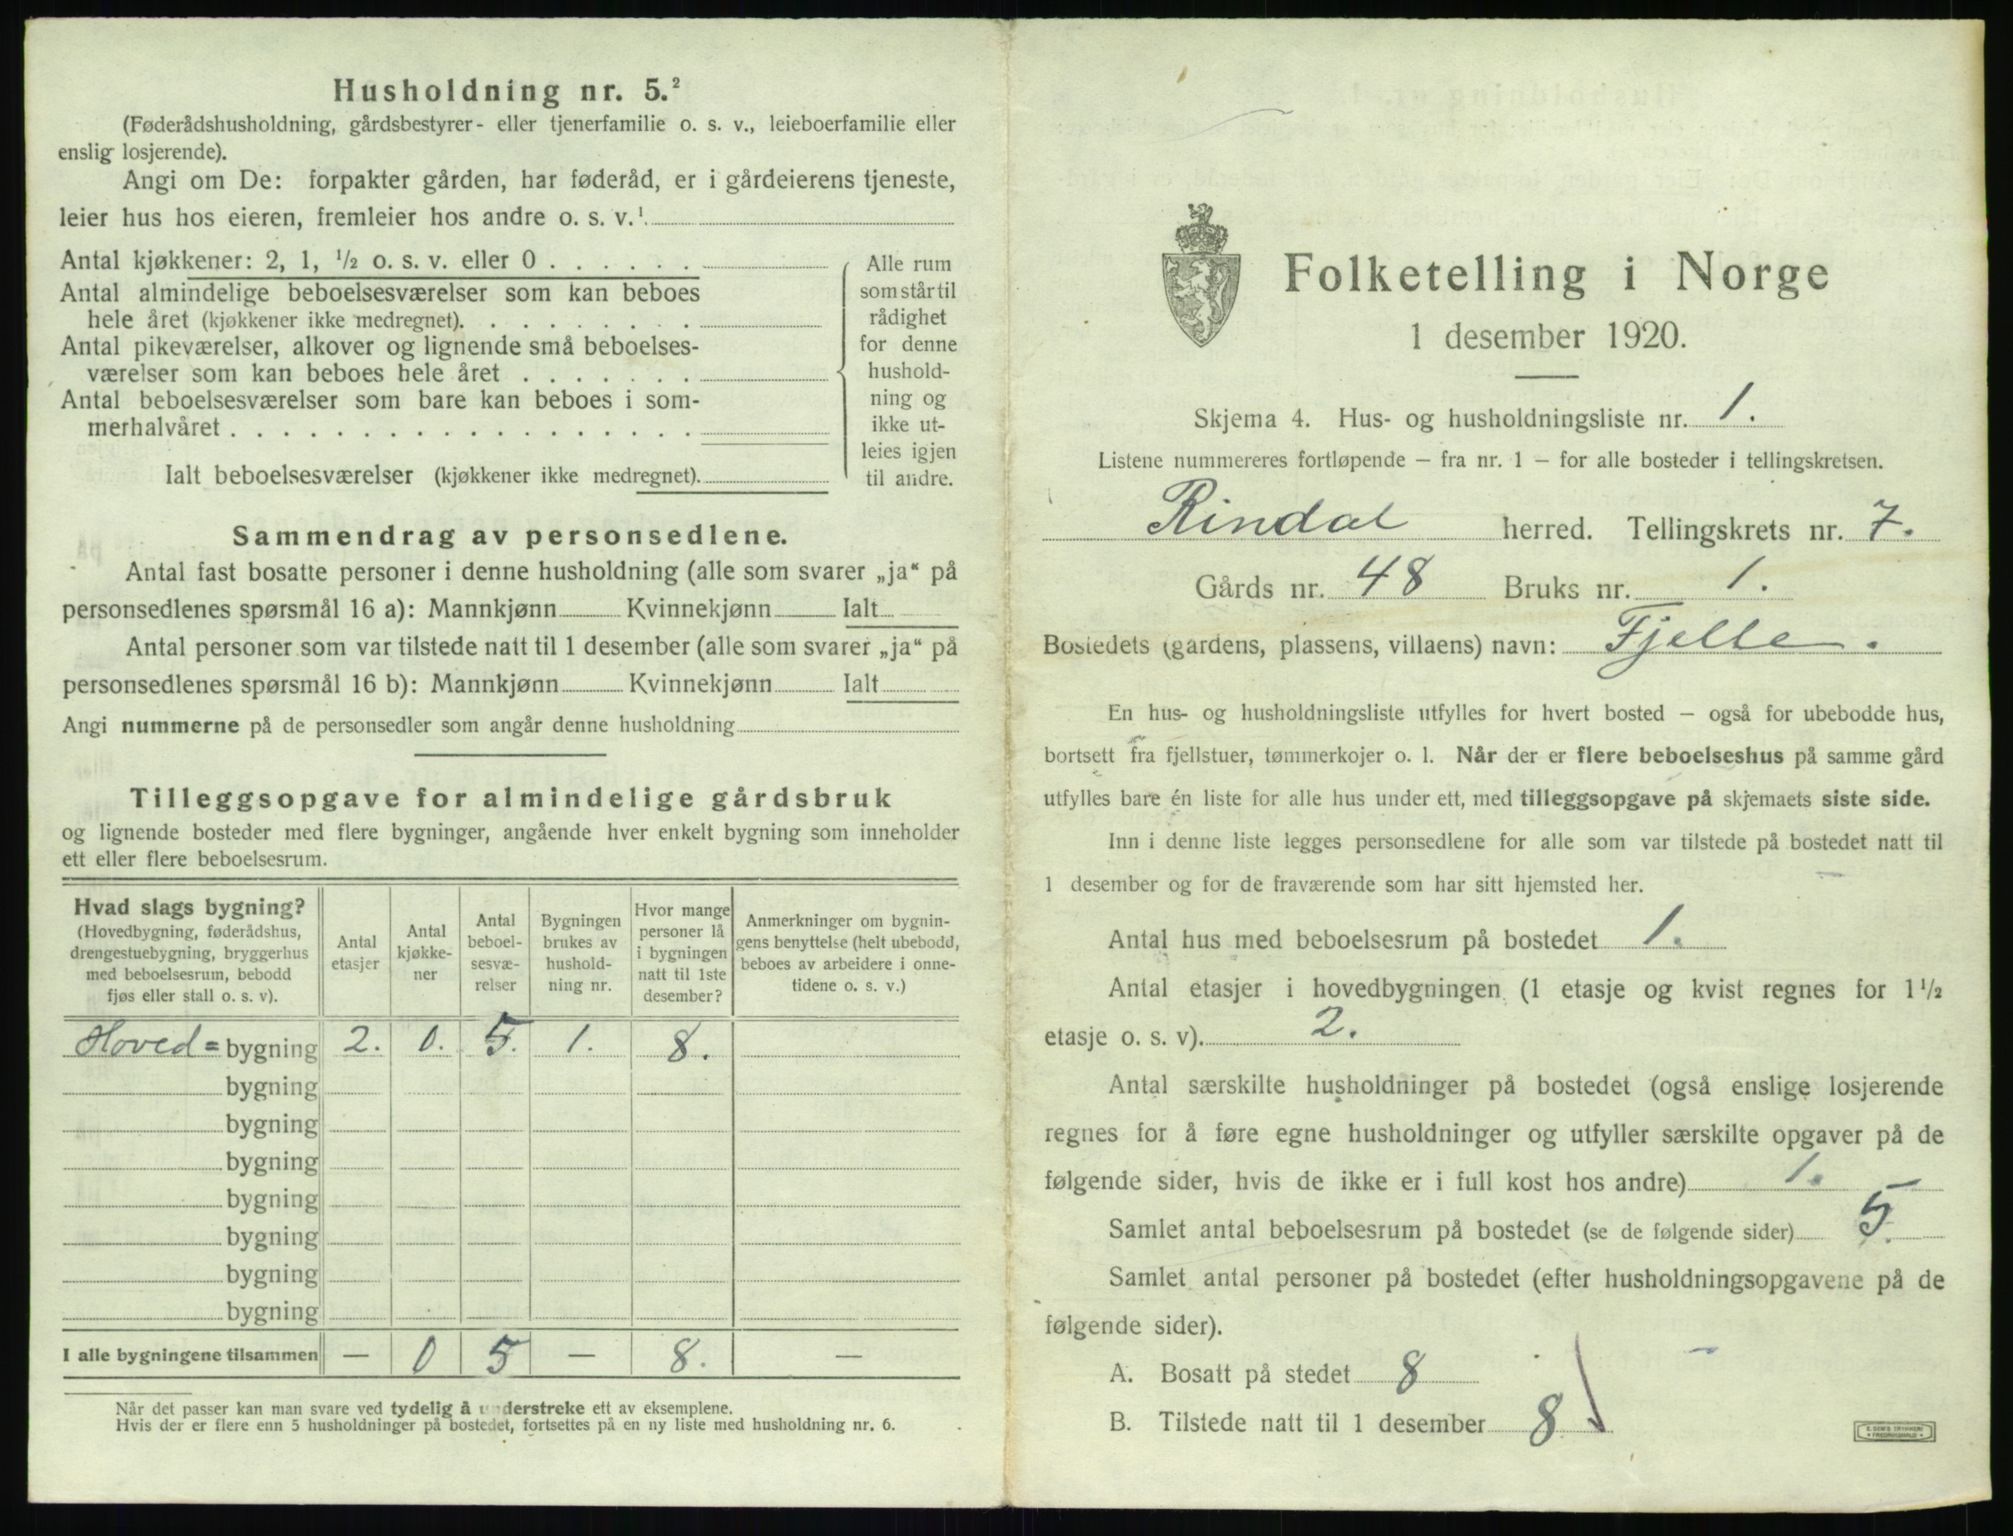 Husholdning nr. 5.²
(Føderådshusholdning, gårdsbestyrer- eller tjenerfamilie o. s. v., leieboerfamilie eller
enslig losjerende).
Angi om De: forpakter gården, har føderåd, er i gårdeierens tjeneste,
leier hus hos eieren, fremleier hos andre o. s. v.¹
Antal kjøkkener: 2, 1, ½ o. s. v. eller 0 . . . . . .
Antal almindelige beboelsesværelser som kan beboes
hele året (kjøkkener ikke medregnet). . . . . . . . .
Antal pikeværelser, alkover og lignende små beboelses-
værelser som kan beboes hele året . . . . . . .
Antal beboelsesværelser som bare kan beboes i som-
merhalvåret . . . . . . . . . . . . . . . . . .
Ialt beboelsesværelser (kjøkkener ikke medregnet).
Alle rum
som står til
rådighet
for denne
hushold-
ning og
ikke ut-
leies igjen
til andre.
Sammendrag av personsedlene.
Antal fast bosatte personer i denne husholdning (alle som svarer „ja“ på
personsedlenes spørsmål 16 a): Mannkjønn Kvinnekjønn Ialt
Antal personer som var tilstede natt til 1 desember (alle som svarer „ja“ på
personsedlenes spørsmål 16 b): Mannkjønn Kvinnekjønn Ialt
Angi nummerne på de personsedler som angår denne husholdning
Tilleggsopgave for almindelige gårdsbruk
og lignende bosteder med flere bygninger, angående hver enkelt bygning som inneholder
ett eller flere beboelsesrum.
Hvad slags bygning?
(Hovedbygning, føderådshus,
drengestuebygning, bryggerhus
med beboelsesrum, bebodd
fjøs eller stall o. s. v).
Antal
etasjer
Antal
kjøkke-
ner
Antal
beboel-
sesvæ-
relser
Bygningen
brukes av
hushold-
ning nr.
Hvor mange
personer lå
i bygningen
natt til 1ste
desember?
Anmerkninger om bygnin-
gens benyttelse (helt ubebodd,
beboes av arbeidere i onne-
tidene o. s. v.)
Hoved= bygning 2. 0. 5. 1. 8.
bygning
bygning
bygning
bygning
bygning
bygning
bygning
I alle bygningene tilsammen — 0 5 — 8. —
Når det passer kan man svare ved tydelig å understreke ett av eksemplene.
Hvis der er flere enn 5 husholdninger på bostedet, fortsettes på en ny liste med husholdning nr. 6.
Folketelling i Norge
1 desember 1920.
Skjema 4. Hus- og husholdningsliste nr. 1.
Listene nummereres fortløpende – fra nr. 1 – for alle bosteder i tellingskretsen.
Rindal herred. Tellingskrets nr. 7.
Gårds nr. 48 Bruks nr. 1.
Bostedets (gårdens, plassens, villaens) navn: Fjelle.
En hus- og husholdningsliste utfylles for hvert bosted – også for ubebodde hus,
bortsett fra fjellstuer, tømmerkojer o. l. Når der er flere beboelseshus på samme gård
utfylles bare én liste for alle hus under ett, med tilleggsopgave på skjemaets siste side.
Inn i denne liste legges personsedlene for alle som var tilstede på bostedet natt til
1 desember og for de fraværende som har sitt hjemsted her.
Antal hus med beboelsesrum på bostedet 1.
Antal etasjer i hovedbygningen (1 etasje og kvist regnes for 1½
etasje o. s. v). 2.
Antal særskilte husholdninger på bostedet (også enslige losjerende
regnes for å føre egne husholdninger og utfyller særskilte opgaver på de
følgende sider, hvis de ikke er i full kost hos andre) 1.
Samlet antal beboelsesrum på bostedet (se de følgende sider) 5.
Samlet antal personer på bostedet (efter husholdningsopgavene på de
følgende sider).
A. Bosatt på stedet 8
B. Tilstede natt til 1 desember 8